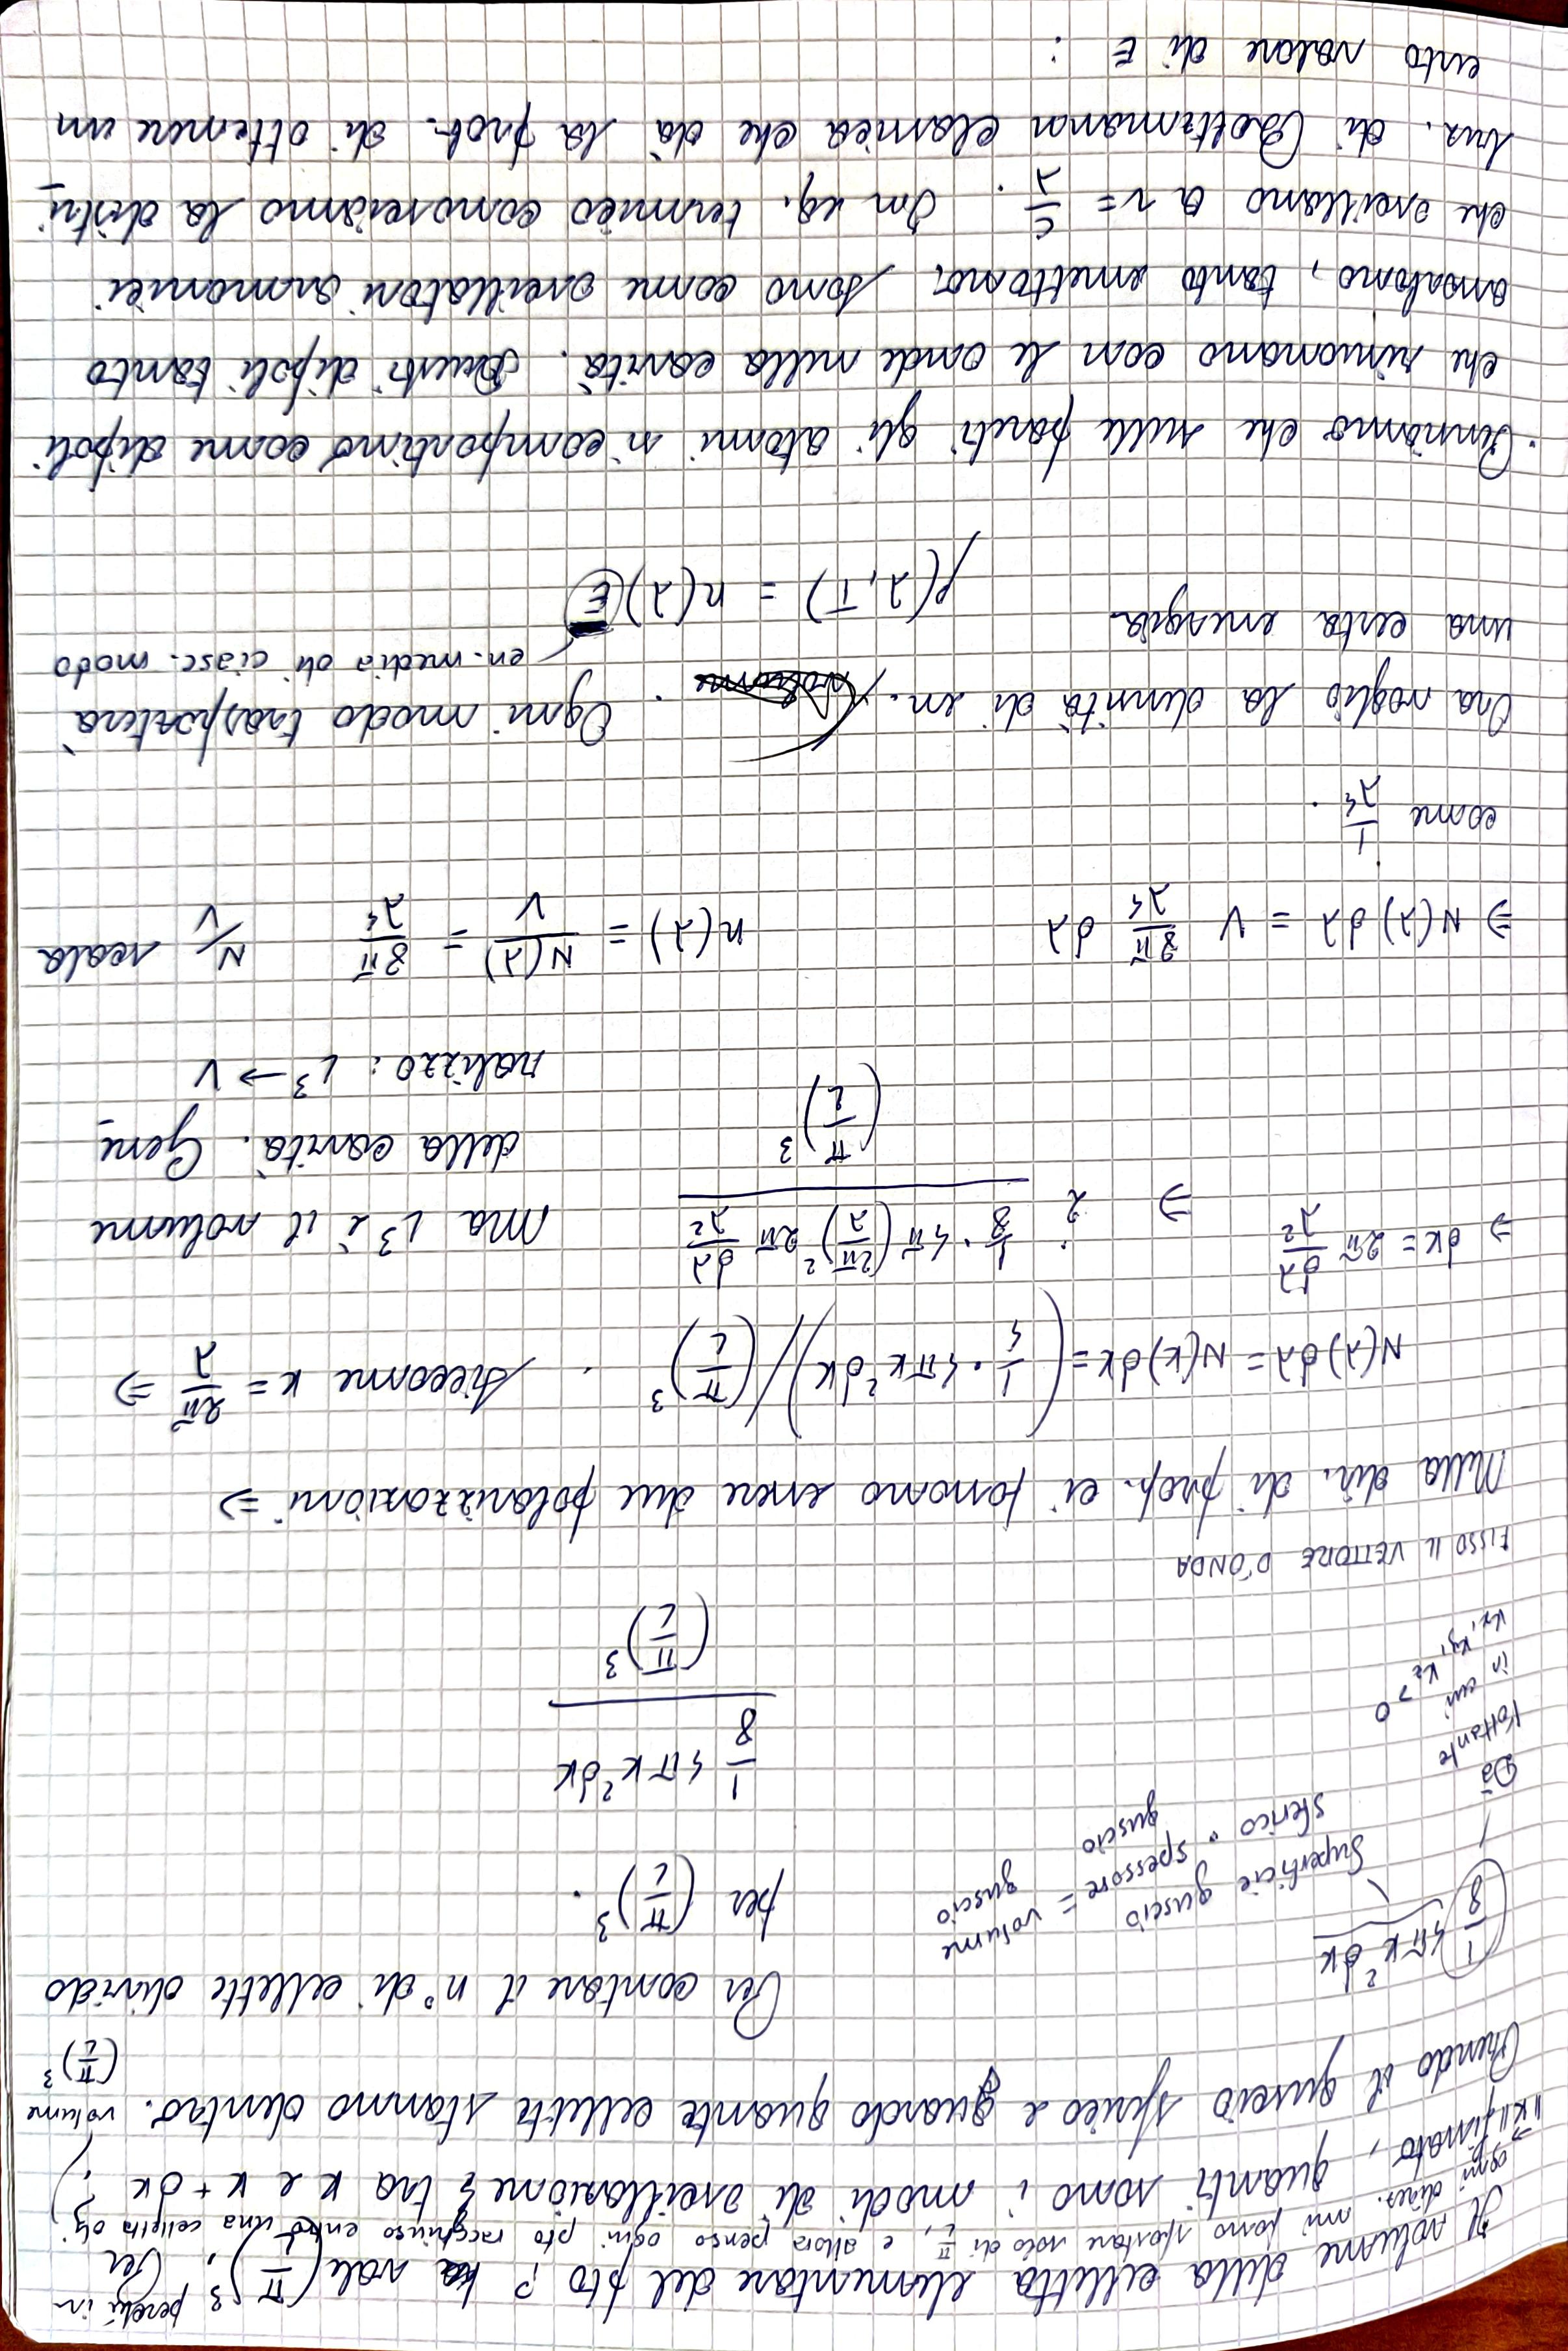 Il volume della celletta elementare del pto P vale (π/L)³, perché in
ogni direz. mi posso spostare solo di π/L, e allora penso ogni pto racchiuso entro una celletta di volume (π/L)³
Per ||k⃗|| fissato, quanti sono i modi di oscillazione tra k e k + dk ?
Prendo il guscio sferico e guardo quante cellette stanno dentro.
1/8 4πk² dk
Dà
l'ottante
in cui
kx, ky, kz > 0
Superficie guscio
sferico · spessore
guscio
= volume
guscio
Per contare il n° di cellette divido
per (π/L)³.
1/8 4πk²dk
(π/L)³
FISSO IL VETTORE D'ONDA
Nella dir. di prop. ci possono essere due polarizzazioni ⇒
N(λ)dλ = N(k)dk = (1/4 · 4πk²dk)/(π/L)³ . Siccome k = 2π/λ ⇒
⇒ dk = 2π dλ/λ² ⇒ 2 · 1/8 · 4π (2π/λ)² 2π dλ/λ² / (π/L)³ Ma L³ è il volume
della cavità. Gene
ralizzo: L³ → V
⇒ N(λ) dλ = V 8π/λ⁴ dλ n(λ) = N(λ)/V = 8π/λ⁴ N/V scala
come 1/λ⁴ .
Ora voglio la densità di en. . Ogni modo trasporterà
una certa energia
en. media di ciasc. modo
ρ(λ,T) = n(λ) E̅
· Pensiamo che sulle pareti gli atomi si comportino come dipoli
che risuonano con le onde nella cavità. Questi dipoli tanto
assorbono, tanto emettono, sono come oscillatori armonici
che oscillano a ν = c/λ . In eq. termico conosciamo la distri
bus. di Boltzmann classica che dà la prob. di ottenere un
certo valore di E :